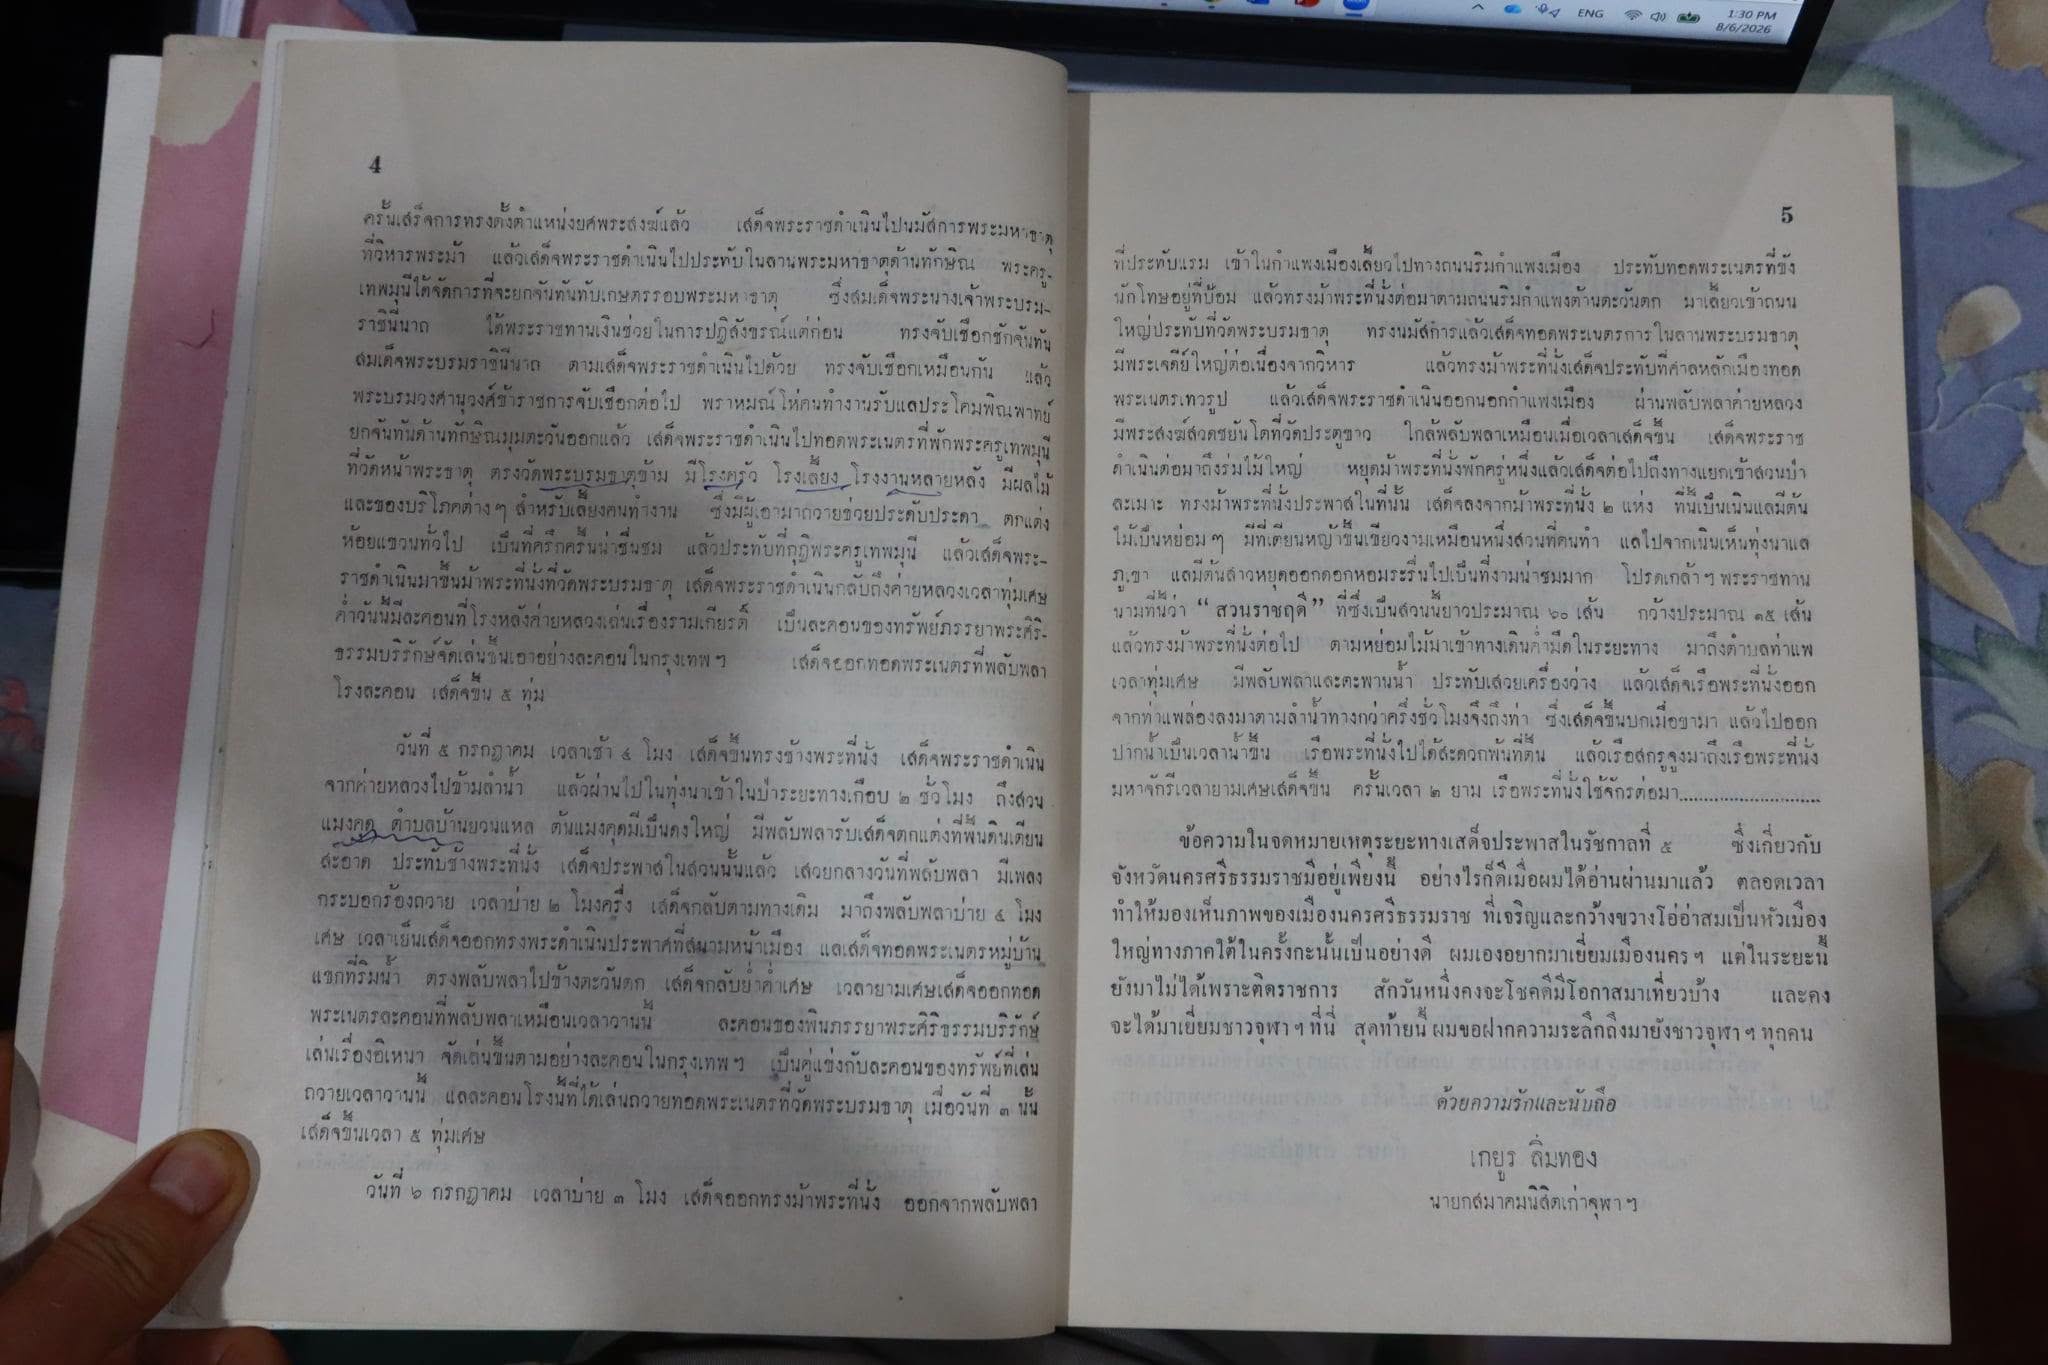 1:30 PM
ENG
8/6/2026
4
ครั้นเสร็จการทรงตั้งตำแหน่งยศพระสงฆ์แล้ว เสด็จพระราชดำเนินไปนมัสการพระมหาธาตุ
ที่วิหารพระม้า แล้วเสด็จพระราชดำเนินไปประทับในลานพระมหาธาตุด้านทักษิณ พระครู-
เทพมุนีได้จัดการที่จะยกจันทันทับเกษตรรอบพระมหาธาตุ ซึ่งสมเด็จพระนางเจ้าพระบรม-
ราชินีนาถ ได้พระราชทานเงินช่วยในการปฏิสังขรณ์แต่ก่อน ทรงจับเชือกชักจันทัน
สมเด็จพระบรมราชินีนาถ ตามเสด็จพระราชดำเนินไปด้วย ทรงจับเชือกเหมือนกัน แล้ว
พระบรมวงศานุวงศ์ข้าราชการจับเชือกต่อไป พราหมณ์โห่คนทำงานรับแลประโคมพิณพาทย์
ยกจันทันด้านทักษิณมุมตะวันออกแล้ว เสด็จพระราชดำเนินไปทอดพระเนตรที่พักพระครูเทพมุนี
ที่วัดหน้าพระธาตุ ตรงวัดพระบรมธาตุข้าม มีโรงครัว โรงเลี้ยง โรงงานหลายหลัง มีผลไม้
และของบริโภคต่างๆ สำหรับเลี้ยงคนทำงาน ซึ่งมีผู้เอามาถวายช่วยประดับประดา ตกแต่ง
ห้อยแขวนทั่วไป เป็นที่ครึกครื้นน่าชื่นชม แล้วประทับที่กุฏิพระครูเทพมุนี แล้วเสด็จพระ-
ราชดำเนินมาขึ้นม้าพระที่นั่งที่วัดพระบรมธาตุ เสด็จพระราชดำเนินกลับถึงค่ายหลวงเวลาทุ่มเศษ
ค่ำวันนี้มีละคอนที่โรงหลังค่ายหลวงเล่นเรื่องรามเกียรติ์ เป็นละคอนของทรัพย์ภรรยาพระศิริ-
ธรรมบริรักษ์จัดเล่นขึ้นเอาอย่างละคอนในกรุงเทพฯ เสด็จออกทอดพระเนตรที่พลับพลา
โรงละคอน เสด็จขึ้น ๕ ทุ่ม
วันที่ ๕ กรกฎาคม เวลาเช้า ๔ โมง เสด็จขึ้นทรงช้างพระที่นั่ง เสด็จพระราชดำเนิน
จากค่ายหลวงไปข้ามลำน้ำ แล้วผ่านไปในทุ่งนาเข้าในป่าระยะทางเกือบ ๒ ชั่วโมง ถึงสวน
แมงคุด ตำบลบ้านยวนแหล ต้นแมงคุดมีเป็นดงใหญ่ มีพลับพลารับเสด็จตกแต่งที่พื้นดินเตียน
สะอาด ประทับช้างพระที่นั่ง เสด็จประพาสในสวนนั้นแล้ว เสวยกลางวันที่พลับพลา มีเพลง
กระบอกร้องถวาย เวลาบ่าย ๒ โมงครึ่ง เสด็จกลับตามทางเดิม มาถึงพลับพลาบ่าย ๔ โมง
เศษ เวลาเย็นเสด็จออกทรงพระดำเนินประพาศที่สนามหน้าเมือง แลเสด็จทอดพระเนตรหมู่บ้าน
แขกที่ริมน้ำ ตรงพลับพลาไปข้างตะวันตก เสด็จกลับย่ำค่ำเศษ เวลายามเศษเสด็จออกทอด
พระเนตรละคอนที่พลับพลาเหมือนเวลาวานนี้ ละคอนของพินภรรยาพระศิริธรรมบริรักษ์
เล่นเรื่องอิเหนา จัดเล่นขึ้นตามอย่างละคอนในกรุงเทพฯ เป็นคู่แข่งกับละคอนของทรัพย์ที่เล่น
ถวายเวลาวานนี้ แลละคอนโรงนี้ที่ได้เล่นถวายทอดพระเนตรที่วัดพระบรมธาตุ เมื่อวันที่ ๓ นั้น
เสด็จขึ้นเวลา ๕ ทุ่มเศษ
วันที่ ๖ กรกฎาคม เวลาบ่าย ๓ โมง เสด็จออกทรงม้าพระที่นั่ง ออกจากพลับพลา
5
ที่ประทับแรม เข้าในกำแพงเมืองเลี้ยวไปทางถนนริมกำแพงเมือง ประทับทอดพระเนตรที่ขัง
นักโทษอยู่ที่ป้อม แล้วทรงม้าพระที่นั่งต่อมาตามถนนริมกำแพงด้านตะวันตก มาเลี้ยวเข้าถนน
ใหญ่ประทับที่วัดพระบรมธาตุ ทรงนมัสการแล้วเสด็จทอดพระเนตรการในลานพระบรมธาตุ
มีพระเจดีย์ใหญ่ต่อเนื่องจากวิหาร แล้วทรงม้าพระที่นั่งเสด็จประทับที่ศาลหลักเมืองทอด
พระเนตรเทวรูป แล้วเสด็จพระราชดำเนินออกนอกกำแพงเมือง ผ่านพลับพลาค่ายหลวง
มีพระสงฆ์สวดชยันโตที่วัดประตูขาว ใกล้พลับพลาเหมือนเมื่อเวลาเสด็จขึ้น เสด็จพระราช
ดำเนินต่อมาถึงร่มไม้ใหญ่ หยุดม้าพระที่นั่งพักครู่หนึ่งแล้วเสด็จต่อไปถึงทางแยกเข้าสวนป่า
ละเมาะ ทรงม้าพระที่นั่งประพาสในที่นั้น เสด็จลงจากม้าพระที่นั่ง ๒ แห่ง ที่นี้เป็นเนินแลมีต้น
ไม้เป็นหย่อมๆ มีที่เตียนหญ้าขึ้นเขียวงามเหมือนหนึ่งสวนที่คนทำ แลไปจากเนินเห็นทุ่งนาแล
ภูเขา แลมีต้นสาวหยุดออกดอกหอมระรื่นไปเป็นที่งามน่าชมมาก โปรดเกล้าฯ พระราชทาน
นามที่นี้ว่า “ สวนราชฤดี ” ที่ซึ่งเป็นสวนนี้ยาวประมาณ ๖๐ เส้น กว้างประมาณ ๑๕ เส้น
แล้วทรงม้าพระที่นั่งต่อไป ตามหย่อมไม้มาเข้าทางเดินค่ำมืดในระยะทาง มาถึงตำบลท่าแพ
เวลาทุ่มเศษ มีพลับพลาและตะพานน้ำ ประทับเสวยเครื่องว่าง แล้วเสด็จเรือพระที่นั่งออก
จากท่าแพล่องลงมาตามลำน้ำทางกว่าครึ่งชั่วโมงจึงถึงท่า ซึ่งเสด็จขึ้นบกเมื่อขามา แล้วไปออก
ปากน้ำเป็นเวลาน้ำขึ้น เรือพระที่นั่งไปได้สะดวกพ้นที่ตื้น แล้วเรือสกรูจูงมาถึงเรือพระที่นั่ง
มหาจักรีเวลายามเศษเสด็จขึ้น ครั้นเวลา ๒ ยาม เรือพระที่นั่งใช้จักรต่อมา..........................
ข้อความในจดหมายเหตุระยะทางเสด็จประพาสในรัชกาลที่ ๕ ซึ่งเกี่ยวกับ
จังหวัดนครศรีธรรมราชมีอยู่เพียงนี้ อย่างไรก็ดีเมื่อผมได้อ่านผ่านมาแล้ว ตลอดเวลา
ทำให้มองเห็นภาพของเมืองนครศรีธรรมราช ที่เจริญและกว้างขวางโอ่อ่าสมเป็นหัวเมือง
ใหญ่ทางภาคใต้ในครั้งกะนั้นเป็นอย่างดี ผมเองอยากมาเยี่ยมเมืองนครฯ แต่ในระยะนี้
ยังมาไม่ได้เพราะติดราชการ สักวันหนึ่งคงจะโชคดีมีโอกาสมาเที่ยวบ้าง และคง
จะได้มาเยี่ยมชาวจุฬาฯ ที่นี่ สุดท้ายนี้ ผมขอฝากความระลึกถึงมายังชาวจุฬาฯ ทุกคน
ด้วยความรักและนับถือ
เกยูร ลิ่มทอง
นายกสมาคมนิสิตเก่าจุฬาฯ